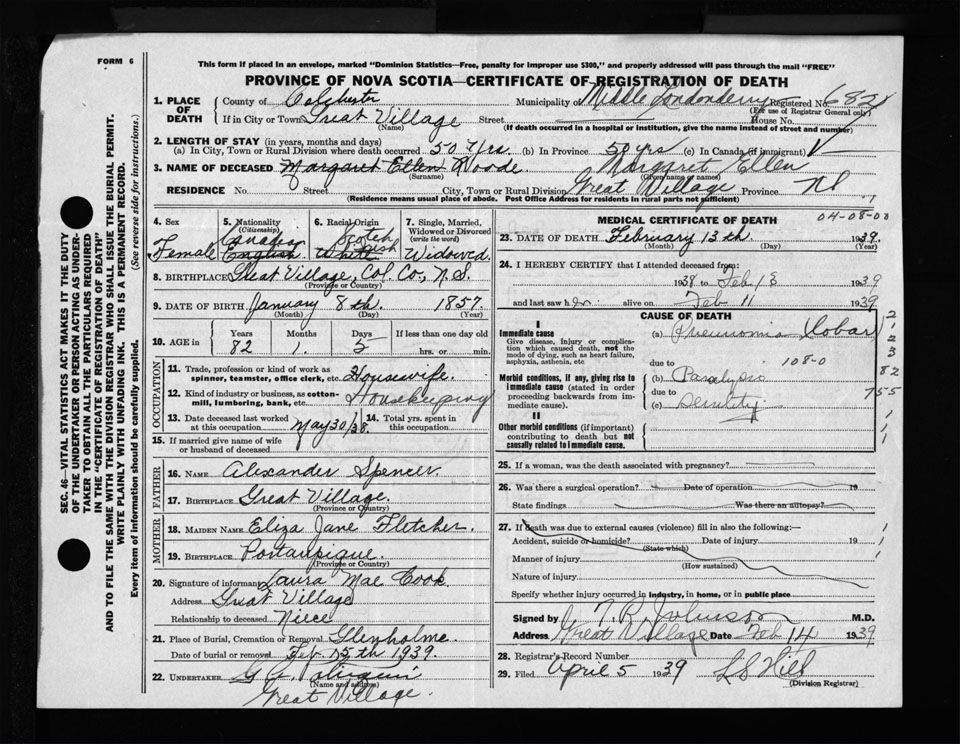 FORM 6
This form if placed in an envelope, marked "Dominion Statistics—Free, penalty for improper use $300," and properly addressed will pass through the mail "FREE"
PROVINCE OF NOVA SCOTIA—CERTIFICATE OF REGISTRATION OF DEATH
1. PLACE OF DEATH
County of Colchester Municipality of Middle Londonderry Registered No. 682
(For use of Registrar General only)
If in City or Town Great Village Street House No.
(Name) (If death occurred in a hospital or institution, give the name instead of street and number)
2. LENGTH OF STAY (in years, months and days)
(a) In City, Town or Rural Division where death occurred 50 yrs. (b) In Province 50 yrs (c) In Canada (if immigrant)
3. NAME OF DECEASED Margaret Ellen Roode Margaret Ellen
(Surname) (Given name or names)
RESIDENCE No. Street City, Town or Rural Division Great Village Province NS
(Residence means usual place of abode. Post Office Address for residents in rural parts not sufficient)
4. Sex 5. Nationality (Citizenship) 6. Racial Origin 7. Single, Married, Widowed or Divorced (write the word)
Canadian Scotch
Female English White Widowed
8. BIRTHPLACE Great Village, Col. Co., N.S.
(Province or Country)
9. DATE OF BIRTH January 8th 1857
(Month) (Day) (Year)
10. AGE in Years Months Days If less than one day old
82 1 5 hrs. or min.
OCCUPATION
11. Trade, profession or kind of work as spinner, teamster, office clerk, etc. Housewife.
12. Kind of industry or business, as cotton-mill, lumbering, bank, etc. Housekeeping
13. Date deceased last worked at this occupation May 30/38 14. Total yrs. spent in this occupation
15. If married give name of wife or husband of deceased
FATHER
16. NAME Alexander Spencer
17. BIRTHPLACE Great Village
(Province or Country)
MOTHER
18. MAIDEN NAME Eliza Jane Fletcher.
19. BIRTHPLACE Portaupique.
(Province or Country)
20. Signature of informant Laura Mae Cook
Address Great Village
Relationship to deceased Niece
21. Place of Burial, Cremation or Removal Glenholme.
Date of burial or removal Feb. 15th 1939.
22. UNDERTAKER
(Name and address)
Great Village.
MEDICAL CERTIFICATE OF DEATH
04-08-00
23. DATE OF DEATH February 13th 1939.
(Month) (Day) (Year)
24. I HEREBY CERTIFY that I attended deceased from:
1938 to Feb 13 1939
and last saw her alive on Feb 11 1939
CAUSE OF DEATH
I
Immediate cause
Give disease, injury or complication which caused death, not the mode of dying, such as heart failure, asphyxia, asthenia, etc
(a) Pneumonia Lobar
due to 108-0
Morbid conditions, if any, giving rise to immediate cause (stated in order proceeding backwards from immediate cause).
(b) Paralysis 82
due to 755
(c) Senility
II
Other morbid conditions (if important) contributing to death but not causally related to immediate cause.
25. If a woman, was the death associated with pregnancy?
26. Was there a surgical operation? Date of operation 19
State findings Was there an autopsy?
27. If death was due to external causes (violence) fill in also the following:—
Accident, suicide or homicide? Date of injury 19
(State which)
Manner of injury
(How sustained)
Nature of injury
Specify whether injury occurred in industry, in home, or in public place
Signed by T. R. Johnson M.D.
Address Great Village Date Feb 14 1939
28. Registrar's Record Number
29. Filed April 5 1939 L S Hill
(Division Registrar)
SEC. 46—VITAL STATISTICS ACT MAKES IT THE DUTY
OF THE UNDERTAKER OR PERSON ACTING AS UNDER-
TAKER TO OBTAIN ALL THE PARTICULARS REQUIRED
IN THE "CERTIFICATE OF REGISTRATION OF DEATH"
AND TO FILE THE SAME WITH THE DIVISION REGISTRAR WHO SHALL ISSUE THE BURIAL PERMIT.
WRITE PLAINLY WITH UNFADING INK. THIS IS A PERMANENT RECORD.
Every item of information should be carefully supplied. (See reverse side for instructions.)